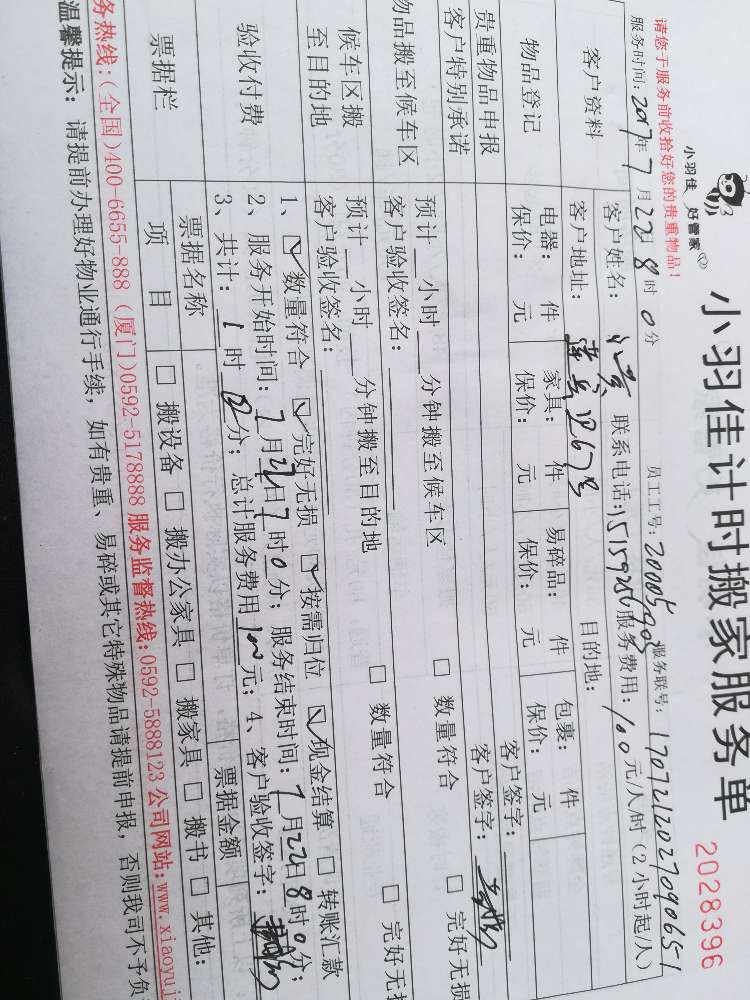 小羽佳 好管家
小羽佳计时搬家服务单
2028396
请您于服务前收拾好您的贵重物品!
员工工号: 20005 服务联号: 1707212027090651
服务时间: 2017年7月22日8时0分
客户资料
客户姓名: 联系电话: 服务费用: 100元/人/时 (2小时起/人)
客户地址: 67号 目的地:
物品登记
电器: 件 家具: 件 易碎品: 件 包裹: 件
保价: 元 保价: 元 保价: 元 保价: 元
客户签字:
贵重物品申报
客户特别承诺
客户签字:
物品搬至候车区
预计__小时__分钟搬至候车区 □ 数量符合 □ 完好无损
客户验收签名:
候车区搬
至目的地
预计__小时__分钟搬至目的地 □ 数量符合 □ 完好无损
客户验收签名:
验收付费
1、☑ 数量符合 ☑ 完好无损 ☑ 按需归位 ☑ 现金结算 □ 转账汇款
2、服务开始时间: 7月22日7时0分; 服务结束时间: 7月22日8时0分;
3、共计: 1时 分; 总计服务费用100元; 4、客户验收签字:
票据栏
票据名称 票据金额
项 目 □ 搬设备 □ 搬办公家具 □ 搬家具 □ 搬书 □ 其他:
务热线: (全国)400-6655-888 (厦门)0592-5178888 服务监督热线: 0592-5888123 公司网站: www.xiaoyuji
温馨提示: 请提前办理好物业通行手续, 如有贵重、易碎或其它特殊物品请提前申报, 否则我司不予负